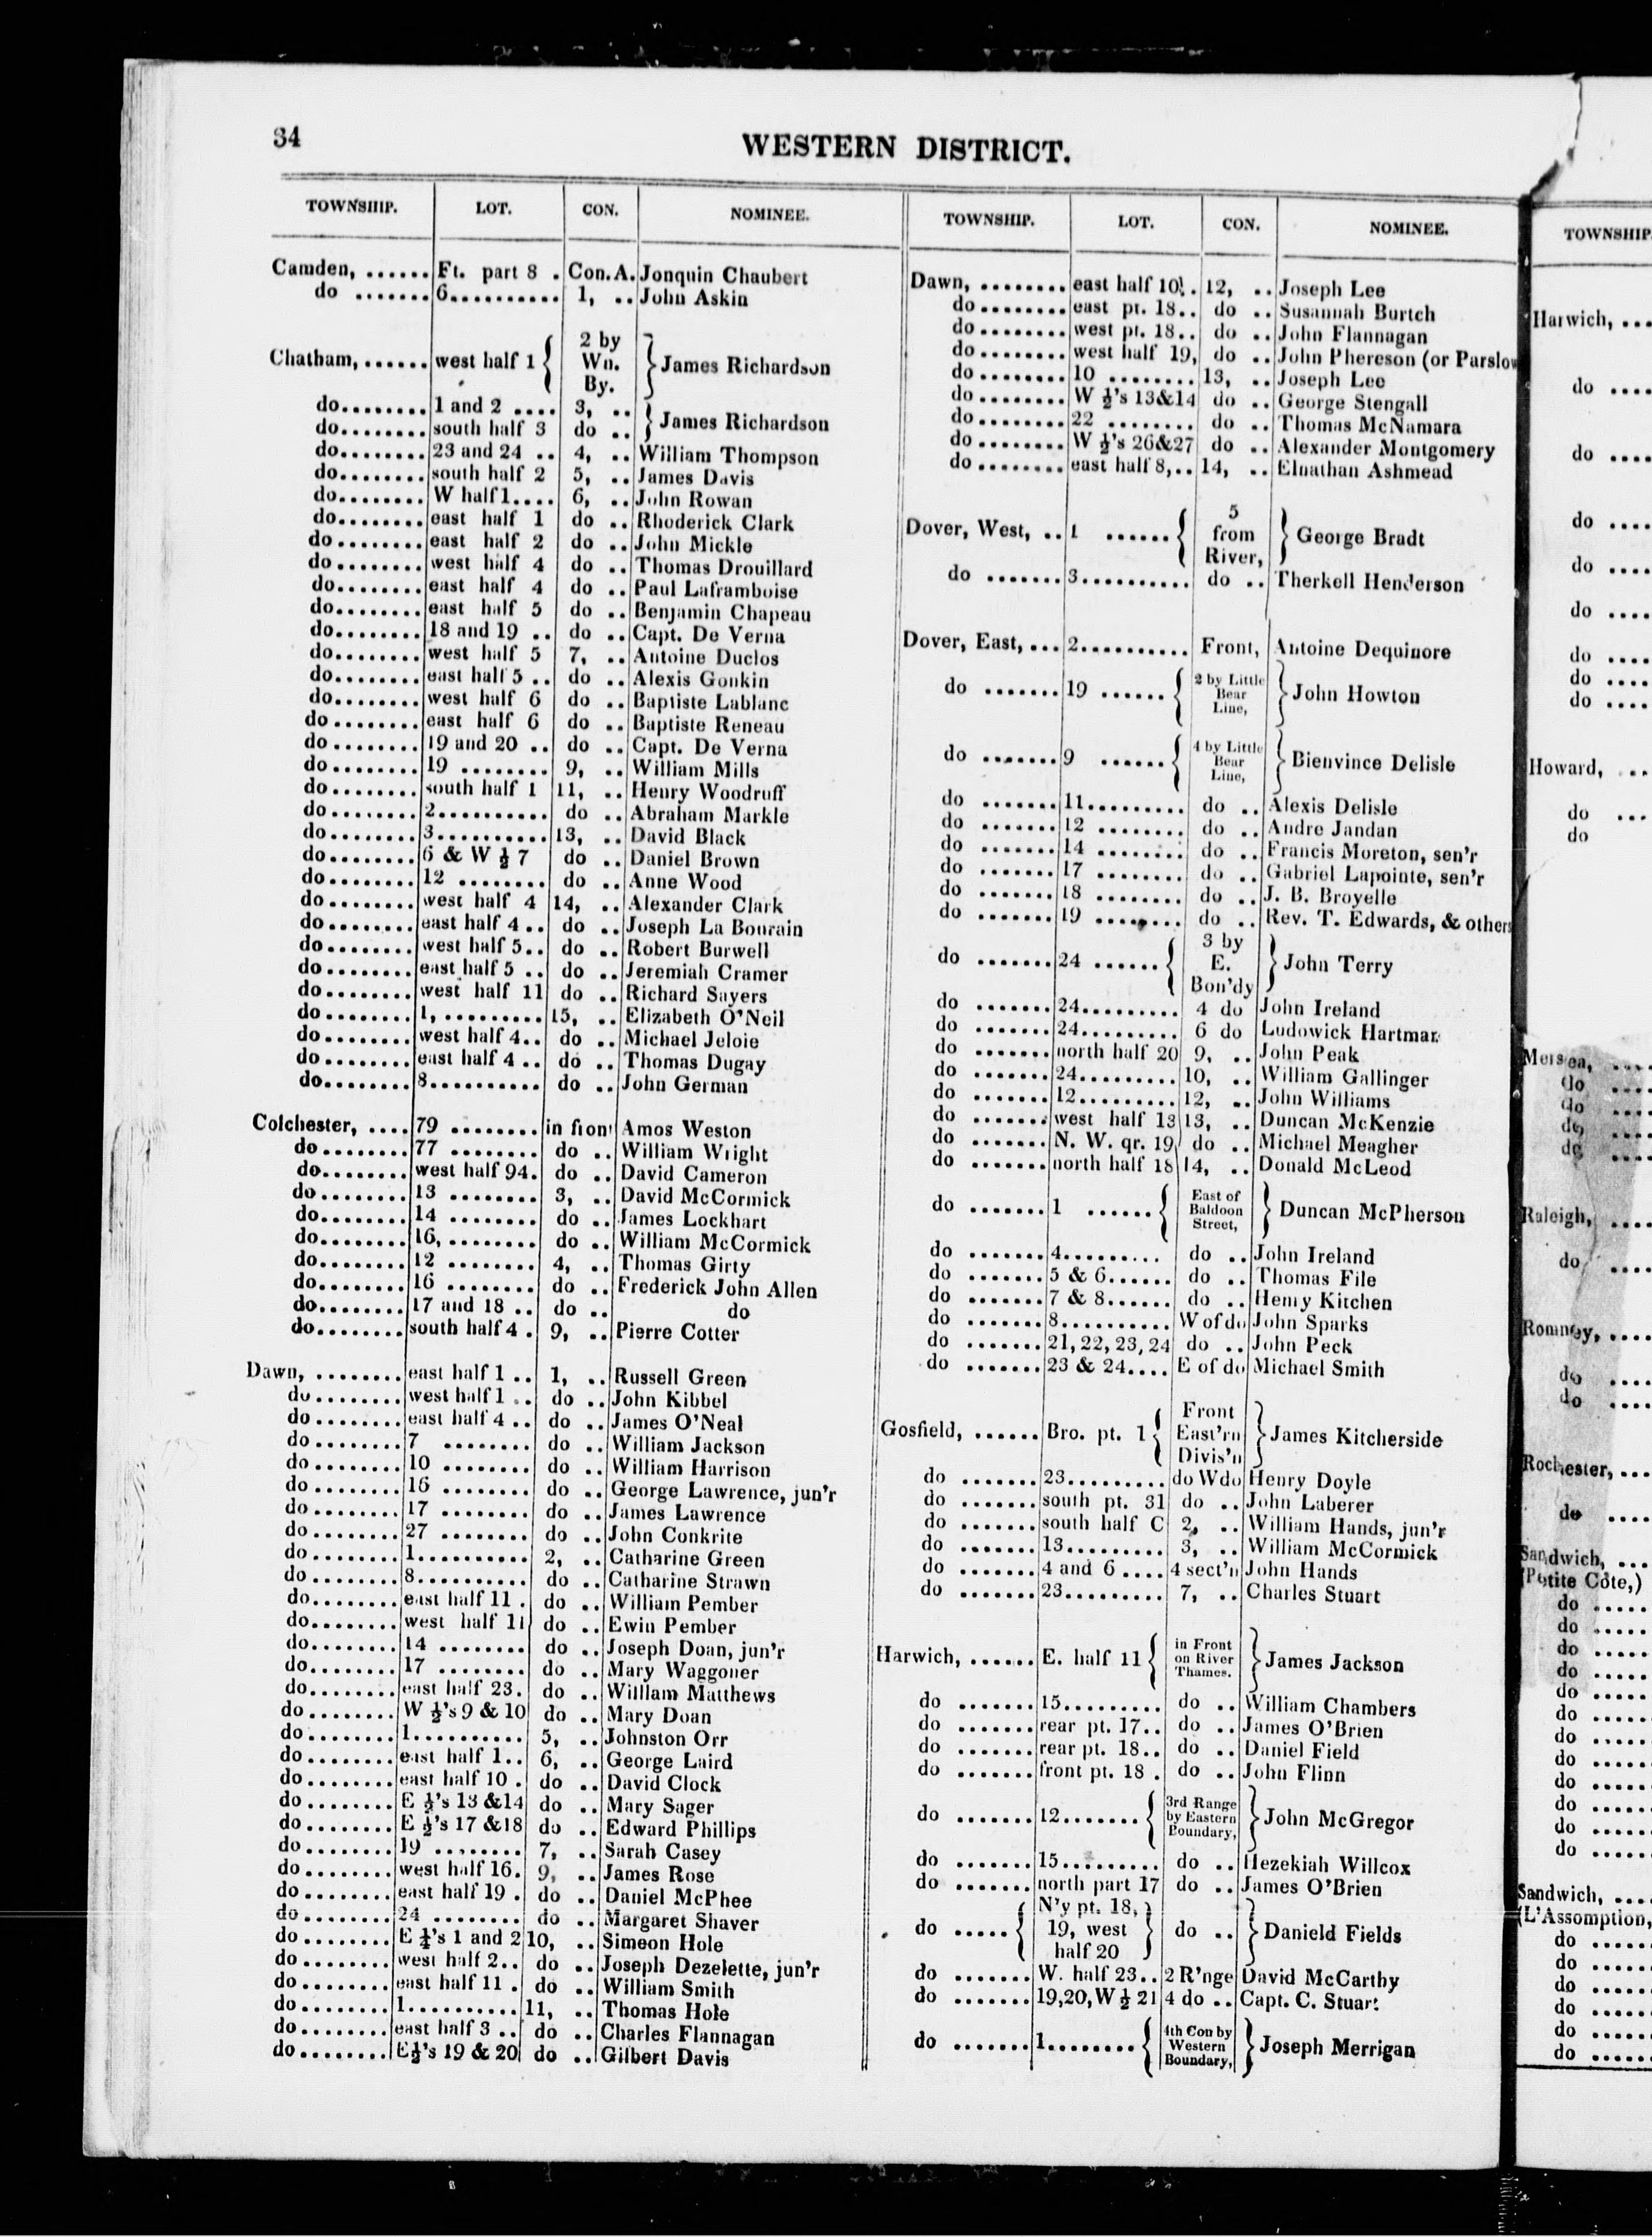 34
WESTERN DISTRICT.
TOWNSHIP. LOT. CON. NOMINEE.
Camden, ...... Ft. part 8 . Con. A. Jonquin Chaubert
do ....... 6.......... 1, .. John Askin
Chatham, ...... west half 1 { 2 by Wn. By. } James Richardson
do........ 1 and 2 .... 3, .. } James Richardson
do........ south half 3 do ..
do........ 23 and 24 .. 4, .. William Thompson
do........ south half 2 5, .. James Davis
do........ W half 1.... 6, .. John Rowan
do........ east half 1 do .. Rhoderick Clark
do........ east half 2 do .. John Mickle
do........ west half 4 do .. Thomas Drouillard
do........ east half 4 do .. Paul Laframboise
do........ east half 5 do .. Benjamin Chapeau
do........ 18 and 19 .. do .. Capt. De Verna
do........ west half 5 7, .. Antoine Duclos
do........ east half 5 .. do .. Alexis Gonkin
do........ west half 6 do .. Baptiste Lablanc
do........ east half 6 do .. Baptiste Reneau
do........ 19 and 20 .. do .. Capt. De Verna
do........ 19 ........ 9, .. William Mills
do........ south half 1 11, .. Henry Woodruff
do........ 2.......... do .. Abraham Markle
do........ 3.......... 13, .. David Black
do........ 6 & W ½ 7 do .. Daniel Brown
do........ 12 ........ do .. Anne Wood
do........ west half 4 14, .. Alexander Clark
do........ east half 4 .. do .. Joseph La Bourain
do........ west half 5.. do .. Robert Burwell
do........ east half 5 .. do .. Jeremiah Cramer
do........ west half 11 do .. Richard Sayers
do........ 1, ......... 15, .. Elizabeth O'Neil
do........ west half 4.. do .. Michael Jeloie
do........ east half 4 .. do .. Thomas Dugay
do........ 8.......... do .. John German
Colchester, .... 79 ........ in front Amos Weston
do........ 77 ........ do .. William Wright
do........ west half 94. do .. David Cameron
do........ 13 ........ 3, .. David McCormick
do........ 14 ........ do .. James Lockhart
do........ 16, ........ do .. William McCormick
do........ 12 ........ 4, .. Thomas Girty
do........ 16 ........ do .. Frederick John Allen
do........ 17 and 18 .. do .. do
do........ south half 4 . 9, .. Pierre Cotter
Dawn, ........ east half 1 .. 1, .. Russell Green
do........ west half 1 .. do .. John Kibbel
do........ east half 4 .. do .. James O'Neal
do........ 7 ........ do .. William Jackson
do........ 10 ........ do .. William Harrison
do........ 16 ........ do .. George Lawrence, jun'r
do........ 17 ........ do .. James Lawrence
do........ 27 ........ do .. John Conkrite
do........ 1.......... 2, .. Catharine Green
do........ 8.......... do .. Catharine Strawn
do........ east half 11 . do .. William Pember
do........ west half 11 do .. Ewin Pember
do........ 14 ........ do .. Joseph Doan, jun'r
do........ 17 ........ do .. Mary Waggoner
do........ east half 23. do .. Willlam Matthews
do........ W ½'s 9 & 10 do .. Mary Doan
do........ 1.......... 5, .. Johnston Orr
do........ east half 1.. 6, .. George Laird
do........ east half 10 . do .. David Clock
do........ E ½'s 13 &14 do .. Mary Sager
do........ E ½'s 17 &18 do .. Edward Phillips
do........ 19 ........ 7, .. Sarah Casey
do........ west half 16. 9, .. James Rose
do........ east half 19 . do .. Daniel McPhee
do........ 24 ........ do .. Margaret Shaver
do........ E ½'s 1 and 2 10, .. Simeon Hole
do........ west half 2.. do .. Joseph Dezelette, jun'r
do........ east half 11 . do .. William Smith
do........ 1.......... 11, .. Thomas Hole
do........ east half 3 .. do .. Charles Flannagan
do........ E½'s 19 & 20 do .. Gilbert Davis
TOWNSHIP. LOT. CON. NOMINEE.
Dawn, ........ east half 10.. 12, .. Joseph Lee
do........ east pt. 18.. do .. Susannah Burtch
do........ west pt. 18.. do .. John Flannagan
do........ west half 19, do .. John Phereson (or Parslow
do........ 10 ........ 13, .. Joseph Lee
do........ W ½'s 13&14 do .. George Stengall
do........ 22 ........ do .. Thomas McNamara
do........ W ½'s 26&27 do .. Alexander Montgomery
do........ east half 8,.. 14, .. Elnathan Ashmead
Dover, West, .. 1 ...... { 5 from River, } George Bradt
do ....... 3.......... do .. Therkell Henderson
Dover, East, ... 2.......... Front, Antoine Dequinore
do ....... 19 ...... { 2 by Little Bear Line, } John Howton
do ....... 9 ...... { 4 by Little Bear Line, } Bienvince Delisle
do ....... 11......... do .. Alexis Delisle
do ....... 12 ........ do .. Andre Jandan
do ....... 14 ........ do .. Francis Moreton, sen'r
do ....... 17 ........ do .. Gabriel Lapointe, sen'r
do ....... 18 ........ do .. J. B. Broyelle
do ....... 19 ........ do .. Rev. T. Edwards, & others
do ....... 24 ...... { 3 by E. Bon'dy } John Terry
do ....... 24......... 4 do John Ireland
do ....... 24......... 6 do Ludowick Hartman
do ....... north half 20 9, .. John Peak
do ....... 24......... 10, .. William Gallinger
do ....... 12......... 12, .. John Williams
do ....... west half 13 13, .. Duncan McKenzie
do ....... N. W. qr. 19 do .. Michael Meagher
do ....... north half 18 14, .. Donald McLeod
do ....... 1 ...... { East of Baldoon Street, } Duncan McPherson
do ....... 4......... do .. John Ireland
do ....... 5 & 6...... do .. Thomas File
do ....... 7 & 8...... do .. Henry Kitchen
do ....... 8.......... W of do John Sparks
do ....... 21, 22, 23, 24 do .. John Peck
do ....... 23 & 24.... E of do Michael Smith
Gosfield, ...... Bro. pt. 1 { Front East'rn Divis'n } James Kitcherside
do ....... 23......... do W do Henry Doyle
do ....... south pt. 31 do .. John Laberer
do ....... south half C 2, .. William Hands, jun'r
do ....... 13......... 3, .. William McCormick
do ....... 4 and 6 .... 4 sect'n John Hands
do ....... 23......... 7, .. Charles Stuart
Harwich, ...... E. half 11 { in Front on River Thames. } James Jackson
do ....... 15......... do .. William Chambers
do ....... rear pt. 17.. do .. James O'Brien
do ....... rear pt. 18.. do .. Daniel Field
do ....... front pt. 18 . do .. John Flinn
do ....... 12....... { 3rd Range by Eastern Boundary, } John McGregor
do ....... 15......... do .. Hezekiah Willcox
do ....... north part 17 do .. James O'Brien
do ..... { N'y pt. 18, 19, west half 20 } do .. } Danield Fields
do ....... W. half 23.. 2 R'nge David McCarthy
do ....... 19,20,W ½ 21 4 do .. Capt. C. Stuart
do ....... 1........ { 4th Con by Western Boundary, } Joseph Merrigan
TOWNSHIP
Harwich, ...
do ....
do ....
do ....
do ....
do ....
do ....
do ....
do ....
Howard, ...
do ...
do
Mersea, ....
do ....
do ....
do, ....
do, ....
Raleigh, ....
do ....
Romney, ....
do ....
do ....
Rochester, ...
do ....
Sandwich, ...
(Petite Côte,)
do .....
do .....
do .....
do .....
do .....
do .....
do .....
do .....
do .....
do .....
do .....
do .....
Sandwich, ....
(L'Assomption,
do .....
do .....
do .....
do .....
do .....
do .....